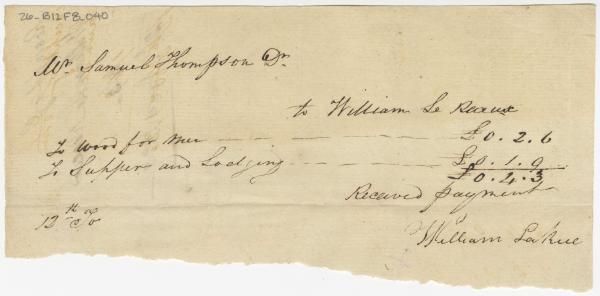 26-B12F8-040
Mr Samuel Thompson Dr
to William Le Reaux
To Wood for Mee £0.2.6
To Supper and Lodging £0.1.9
£0.4.3
Received payment
13th
William LaRue